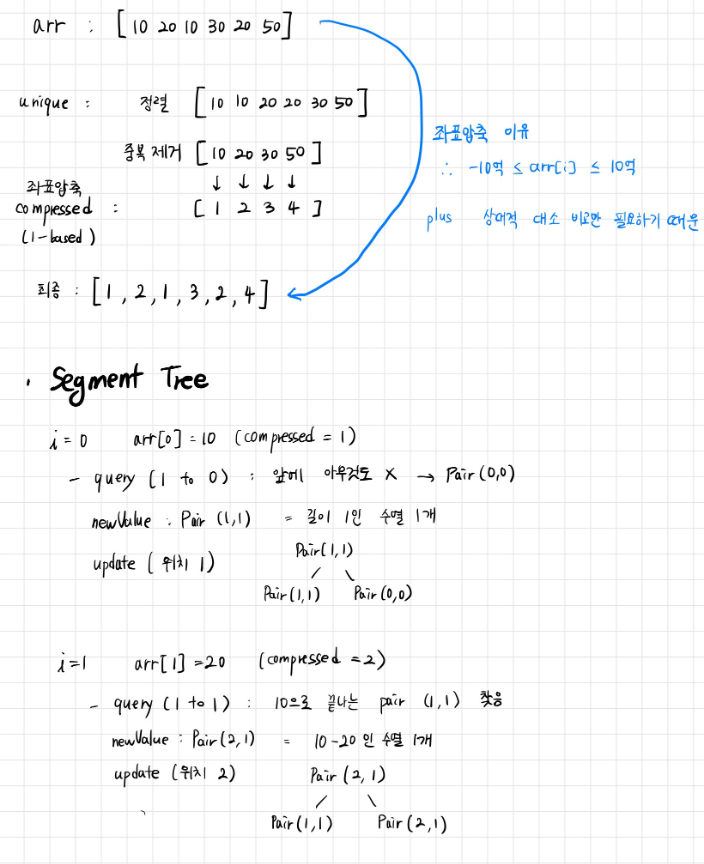 arr : [ 10 20 10 30 20 50 ]
unique : 정렬 [ 10 10 20 20 30 50 ]
중복 제거 [ 10 20 30 50 ]
↓ ↓ ↓ ↓
좌표압축
compressed : [ 1 2 3 4 ]
(1-based)
최종 : [ 1 , 2 , 1 , 3 , 2 , 4 ]
좌표압축 이유
∴ -10억 ≤ arr[i] ≤ 10억
plus 상대적 대소 비교만 필요하기 때문
· Segment Tree
i = 0 arr[0] = 10 (compressed = 1)
- query (1 to 0) : 앞에 아무것도 X → Pair (0,0)
newValue : Pair (1,1) = 길이 1인 수열 1개
update ( 위치 1) Pair(1,1)
Pair(1,1) Pair(0,0)
i=1 arr[1] =20 (compressed =2)
- query (1 to 1) : 10으로 끝나는 pair (1,1) 찾음
newValue : Pair(2,1) = 10-20 인 수열 1개
update (위치 2) Pair (2,1)
Pair(1,1) Pair(2,1)